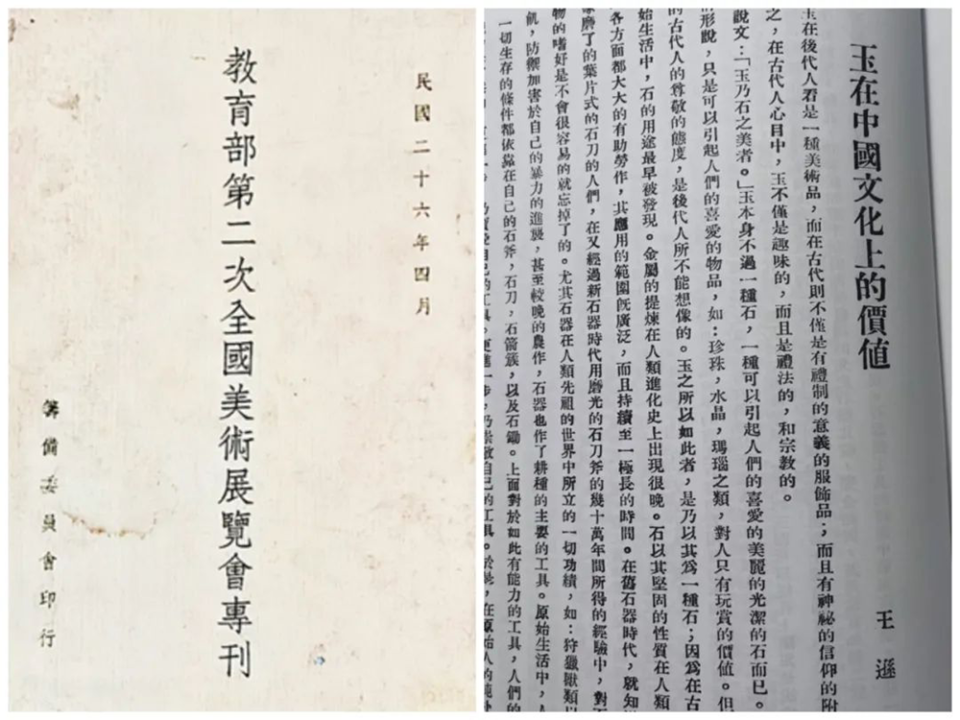 民國二十六年四月
教育部第二次全國美術展覽會專刊
籌備委員會印行
玉在中國文化上的價値
王遜
玉在後代人看是一種美術品，而在古代則不僅是有禮制的意義的服飾品；而且有神祕的信仰的附
之，在古代人心目中，玉不僅是趣味的，而且是禮法的，和宗教的。
說文：「玉乃石之美者。」玉本身不過一種石，一種可以引起人們的喜愛的美麗的光潔的石而已。
形說，只是可以引起人們的喜愛的物品，如：珍珠，水晶，瑪瑙之類，對人只有玩賞的價値。但
的古代人的尊敬的態度，是後代人所不能想像的。玉之所以如此者，是乃以其爲一種石；因爲在古
始生活中，石的用途最早被發現。金屬的提煉在人類進化史上出現很晚。石以其堅固的性質在人類
各方面都大大的有助勞作，其應用的範圍旣廣泛，而且持續至一極長的時間。在舊石器時代，就知
磨了的葉片式的石刀的人們，在又經過新石器時代用磨光的石刀斧的幾十萬年間所得的經驗中，對
物的嗜好是不會很容易的就忘掉了的。尤其石器在人類先祖的世界中所立的一切功績，如：狩獵獸類以
飢，防禦加害於自己的暴力的進襲，甚至較晚的農作，石器也作了耕種的主要的工具。原始生活中，人
一切生存的條件都依靠在自己的石斧，石刀，石箭簇，以及石鋤。上面對於如此有能力的工具，人們的
自己的工具。更進一步，乃崇敬自己的工具。於是，在原始人的